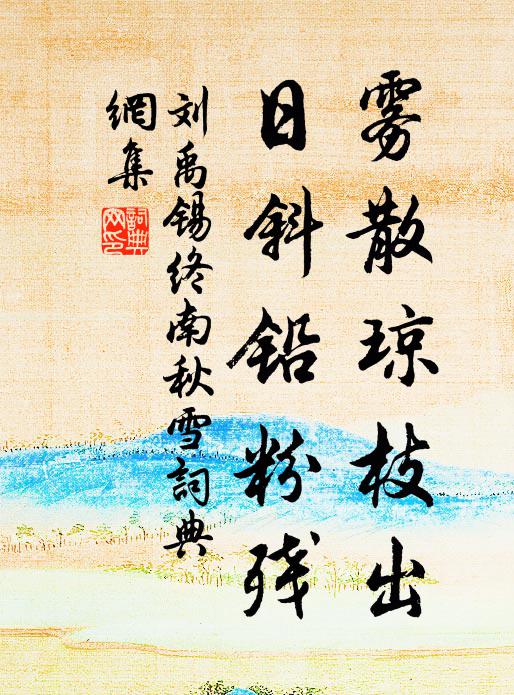 雾散琼枝出
日斜铅粉残
刘禹锡终南秋雪詞典
網集
詞典
网印